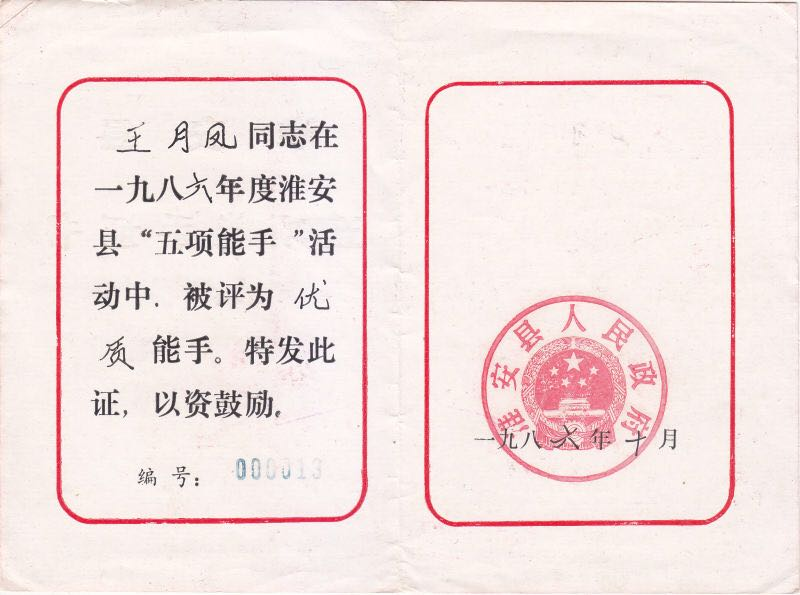 王月凤同志在
一九八六年度淮安
县“五项能手”活
动中，被评为优
质能手。特发此
证，以资鼓励。
编号：000013
淮安县人民政府
一九八六年十月